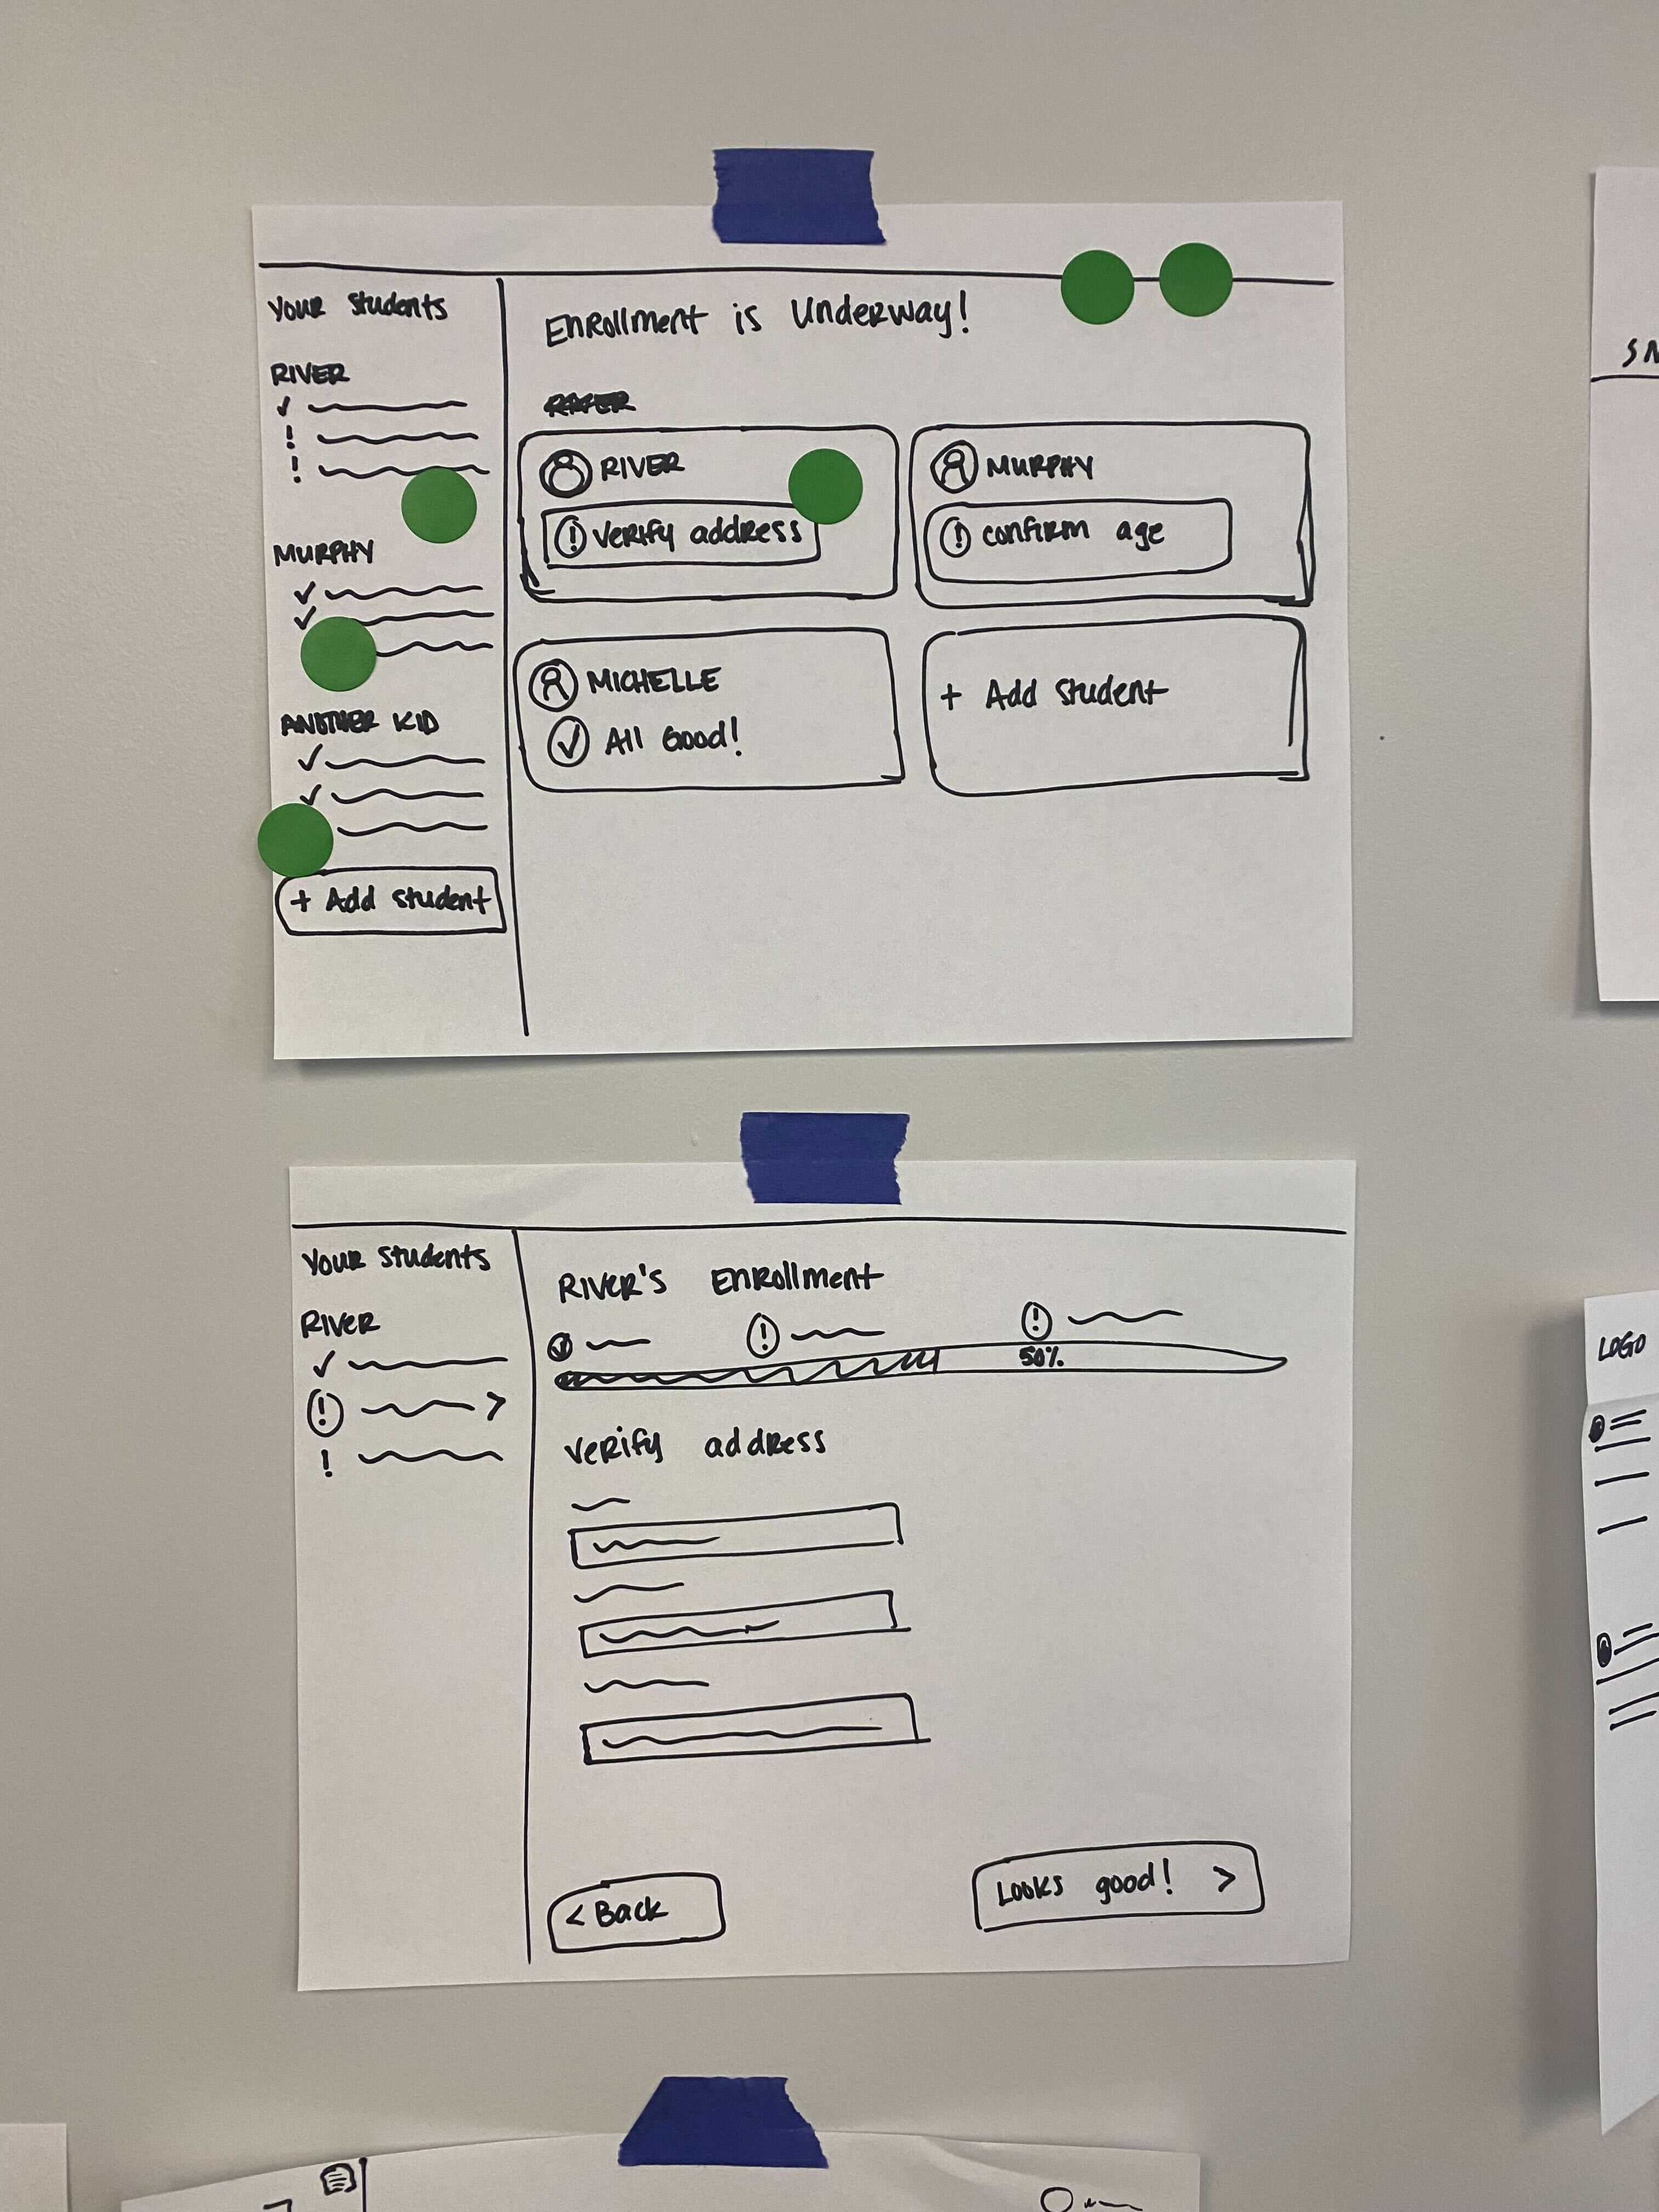 Your Students
RIVER
✓
!
!
MURPHY
✓
✓
ANOTHER KID
✓
✓
+ Add student
Enrollment is Underway!
RIVER
! Verify address
MURPHY
! confirm age
MICHELLE
✓ All Good!
+ Add student
Your Students
RIVER
✓
! >
!
RIVER'S Enrollment
✓ ! !
50%
Verify address
< Back
Looks good! >
LOGO